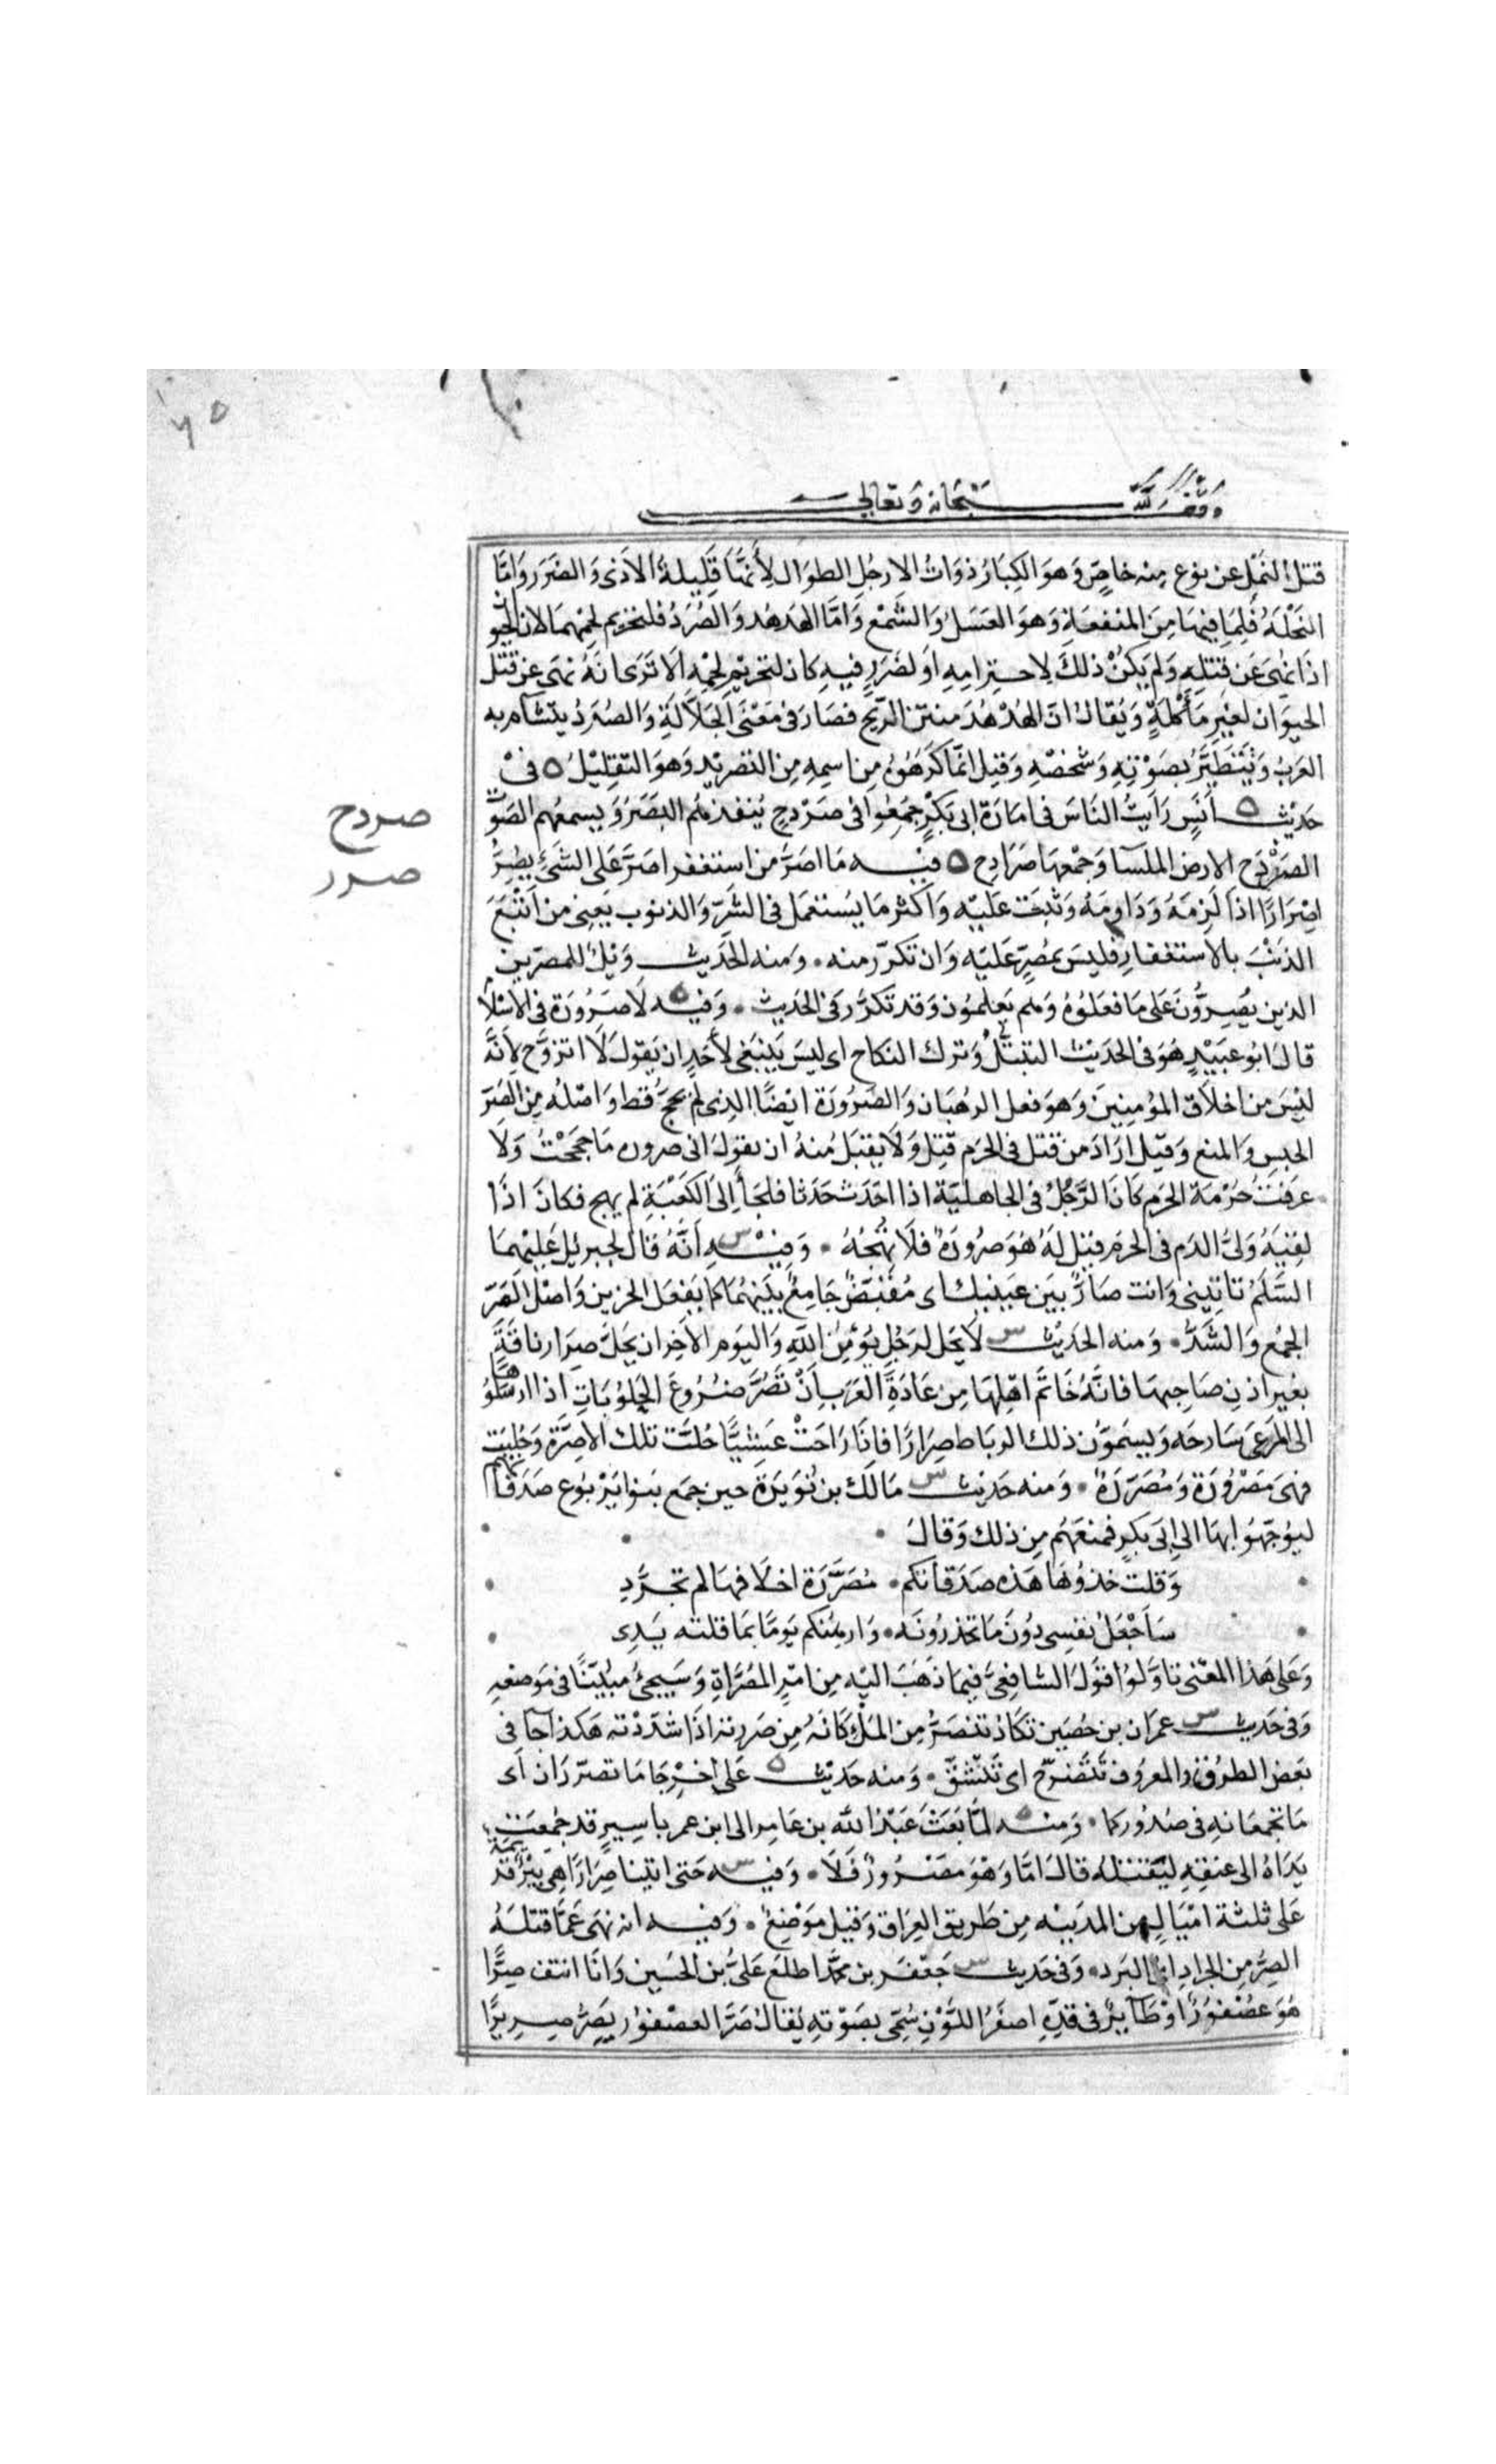 ٦٥
وقف لله سبحانه وتعالى
قتل النمل عن نوع منه خاصٍّ وَهوَ الكِبَارُ ذوَاتُ الارجُلِ الطوَال لِأَنهَّا قَلِيلةُ الاَذى وَالضرَر وَامَّا
النحْلَةُ فلِمَا فِيهَا مِنَ المنفعَةِ وَهوَ العَسَلُ وَالشَّمْع وَامَّا الهدهُد وَالصُّرَدُ فلتحريم لحمِهمَا لان الحيوان
اذَا نُهىَ عَن قتلهِ وَلم يَكنْ ذلكَ لِاحترَامِهِ اوَ لضَرَرٍ فيهِ كانَ لتحريمِ لحمِهِ اَلاَ تَرَى انَهُ نهَى عن قتل
الحيوَان لغيرِ مَأْكَلةٍ وَيُقالُ انَ الهُدْهُدَ منتن الرِّيح فصَارَ فى مَعْنَى الجَلاَّلَةِ وَالصُّرَدُ يتشآمر به
العَرَبُ وَتَتَطَيَّرُ بصَوْتِهِ وَشخصْهِ وَقيلَ انَّمَا كَرِهُوهُ مِن اسمِهِ مِن التصريْد وَهوَ التقِليْلُ ٥ فىْ
حَديْث اَنَسٍ رَايَتُ النَّاسَ فى امَارَة ابى بَكرٍْ جمُعِوُا فى صَرْدحٍ يُنفذ هُم البَصَرُ وَيسمعُهم الصَوْت
صردح
الصَرْدَح الارض الملسَا وَجمْعهَا صَرَادِح ٥ فيْه مَا اصَرَّ من استغفر اصَرَّ عَلى الشَىْءِ يصُِرُّ
صرر
اصْرَارًا اذا لَزِمَهُ وَدَاومَهُ وَثبَت عَليْه وَاكثر مَا يُستعْمَل فى الشَرِّ وَالذنوب يَعنِى من اَتْبَعَ
الذنْبَ بالاستغفارِ فليسَ بمُصِرٍّ عَليْه وَان تكرّر منه ۰ وَمنه الحَديث وَيْلٌ للمصرِّين
الذين يُصِرُّونَ عَلى مَا فعَلوُهُ وَهُم يَعلمُون وَقد تَكرَّرَ فى الحَديث ۰ وَفيْه لَا صَرُورَة فى الاسْلاَم
قالَ ابُو عبَيْدٍ هُوَ فى الحَديْث التبتُّلُ وَترك النكاح اى ليسَ يَنبغى لأَحَدٍ ان يَقولَ لَا اتزوَّج لِاَنَّهُ
ليْسَ من اخلَاق المؤمِنِينَ وَهوَ فعل الرهبَان وَالصَرُورَة ايْضًا الذِى لَم يَحجَّ قط وَاصْلُه مِن الصَرِّ
الحبسِ وَالمنع وَقيْل ارَادَ مَن قَتل فى الحَرم قتِل وَلَا يقبَل مُنهُ ان يقولَ انى صروره مَا حججْتُ وَلاَ
عرَفتُ حُرْمَة الحرَم كَانَ الرَّجُلُ فى الجاهليّة اذا احْدَث حَدَثا فلجَأ اِلىَ الكَعْبَةِ لم يهج فكانَ اذَا
لقِيَهُ وَلىُّ الدَم فى الحرَم قيْل لهَ هُوَ صرُورَةٌ فلَا تَهجْهُ ۰ وَفيْه اَنَّهُ قال لجبريْل عَليْهمَا
السَّلَمُ تاتِينى وَانت صَارٌّ بيَن عيَنيك اى مُقبّضٌ جَامِعٌ بيْنهُما كما يَفْعَل الحزين وَاصْل الصَّرِّ
الجمْع وَالشَّدُّ ۰ وَمنه الحَديْث لَا يَحل لرَجُلٍ يُؤمِنُ باللهِ وَاليَوم الاَخِر ان يَحلَّ صِرَار ناقَةٍ
بغيرِ اذن صَاحِبهَا فانَّهُ خَاتَم اهْلِهَا مِن عَادَةِ العَرَبِ اَنْ تَصُرَّ ضُرُوعَ الحَلوُبَاتِ اذا ارسَلوُهَا
الى المَرعَى سَارحَه وَيسَموُّن ذلكَ الرباط صِرَارًا فاذا رَاحَتْ عَشِيًّا حُلَّت تلك الاصِرَّة وَحُلِبَت
فهىَ مَصْرُورَة وَمُصَرّرَةٌ ۰ وَمنه حَديث مَالك بن نُوَيَرة حين جمَع بَنوا يَرْبوُع صَدَقاتهم
ليوُجّهَوُا بهَا الى ابىَ بكرٍ فمنعَهُم مِن ذلك وَقالَ ۰
وَقلت خذوُهَا هَذه صَدَقاتكم ۰ مُصَرَّرَة اخلَافهَا لم تجرَّدِ
سَاَجْعَلُ نفسِى دُونَ مَا تحذرُونَه ۰ وَارهنكم يَومًا بمَا قلته يَدِى
وَعَلى هَذا المعْنى تاوَّلوُا قَولَ الشافِعِىِّ فيمَا ذَهَبَ اليْه مِن امْرِ المُصَرَّاةِ وَسَيجىُّ مبُيّنًا فى مَوضعِهِ
وَفى حَديث عمرَان بن حُصَين تكاَدُ تنصَرُّ مِن المَلءِ كاَنهُ مِن صَررته اذَا شدَدْته هَكذ اجآ فى
بَعض الطرُق وَالمعرُوف تتَضرَّج اى تَنْشقّ ۰ وَمنه حَديْث عَلى اخرِجَا مَا تصَرّرَان اى
مَا تجمعَانهِ فى صُدُوركما ۰ وَمِنْه لمَّا بَعَثَ عَبْدُ اللّه بن عَامِر الى ابن عمر باسِيرٍ قد جُمِعَت
يَدَاهُ الى عنقِهِ ليَقتلهُ قالَ امَّا وَهْوَ مَصْرورٌ فَلَا ۰ وَفيْه حَتى اتينا صِرَارًا هِى بيْرٌ قديمَة
عَلى ثلثة امْيَالٍ من المدينه مِن طَريق العِرَاق وَقيل مَوْضِعٌ ۰ وَفيْه انه نهَى عَمَّا قتلَهُ
الصِّرُّ مِن الجرَادِ اى البَرد ۰ وَفى حَديث جَعْفر بن محمَّد اطلعَ عَلىَّ بن الحُسَين وَانَا انتف صِرًّا
هُوَ عصُفوُرٌ اوْ طَآيرٌ فى قدِّهِ اصفَرُ اللوَّنِ سُمِّى بصَوْتهِ يُقالُ صَرَّ العصْفوُر يَصِرُّ صرِيرًا